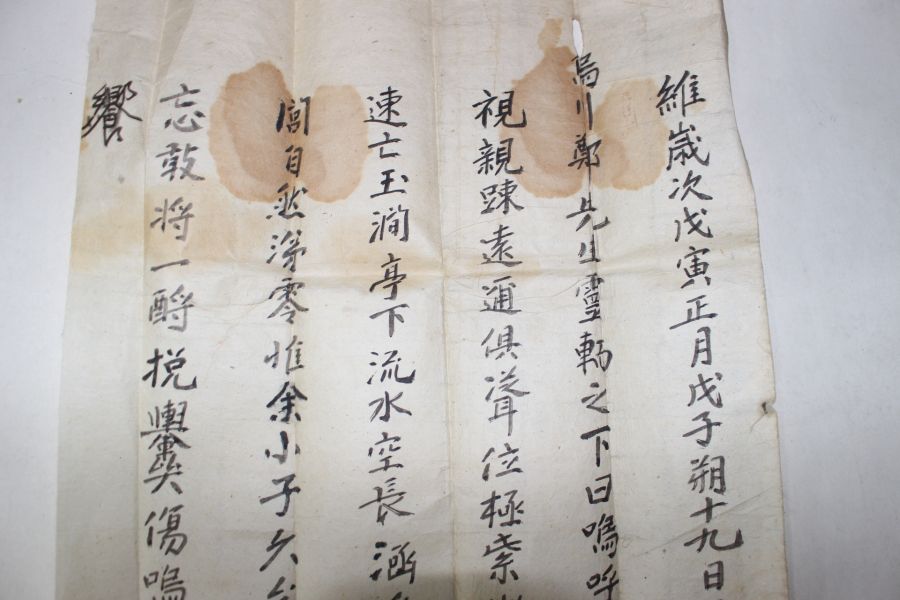 維歲次戊寅正月戊子朔十九日
烏川鄭先生靈輀之下曰嗚呼
視親踈遠邇俱聳位極崇
速亡玉澗亭下流水空長涵
閭自然涕零惟余小子久
忘敢將一酹挽輿傷嗚
饗